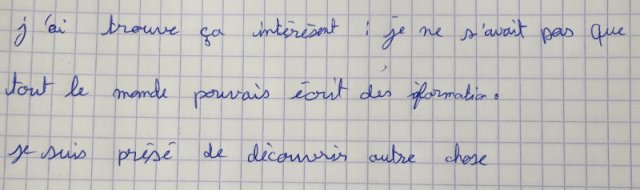 j'ai trouve ça intérèsent : je ne s'avait pas que
tout le monde pouvais écrit des iformation.
je suis présé de découvrir autre chose